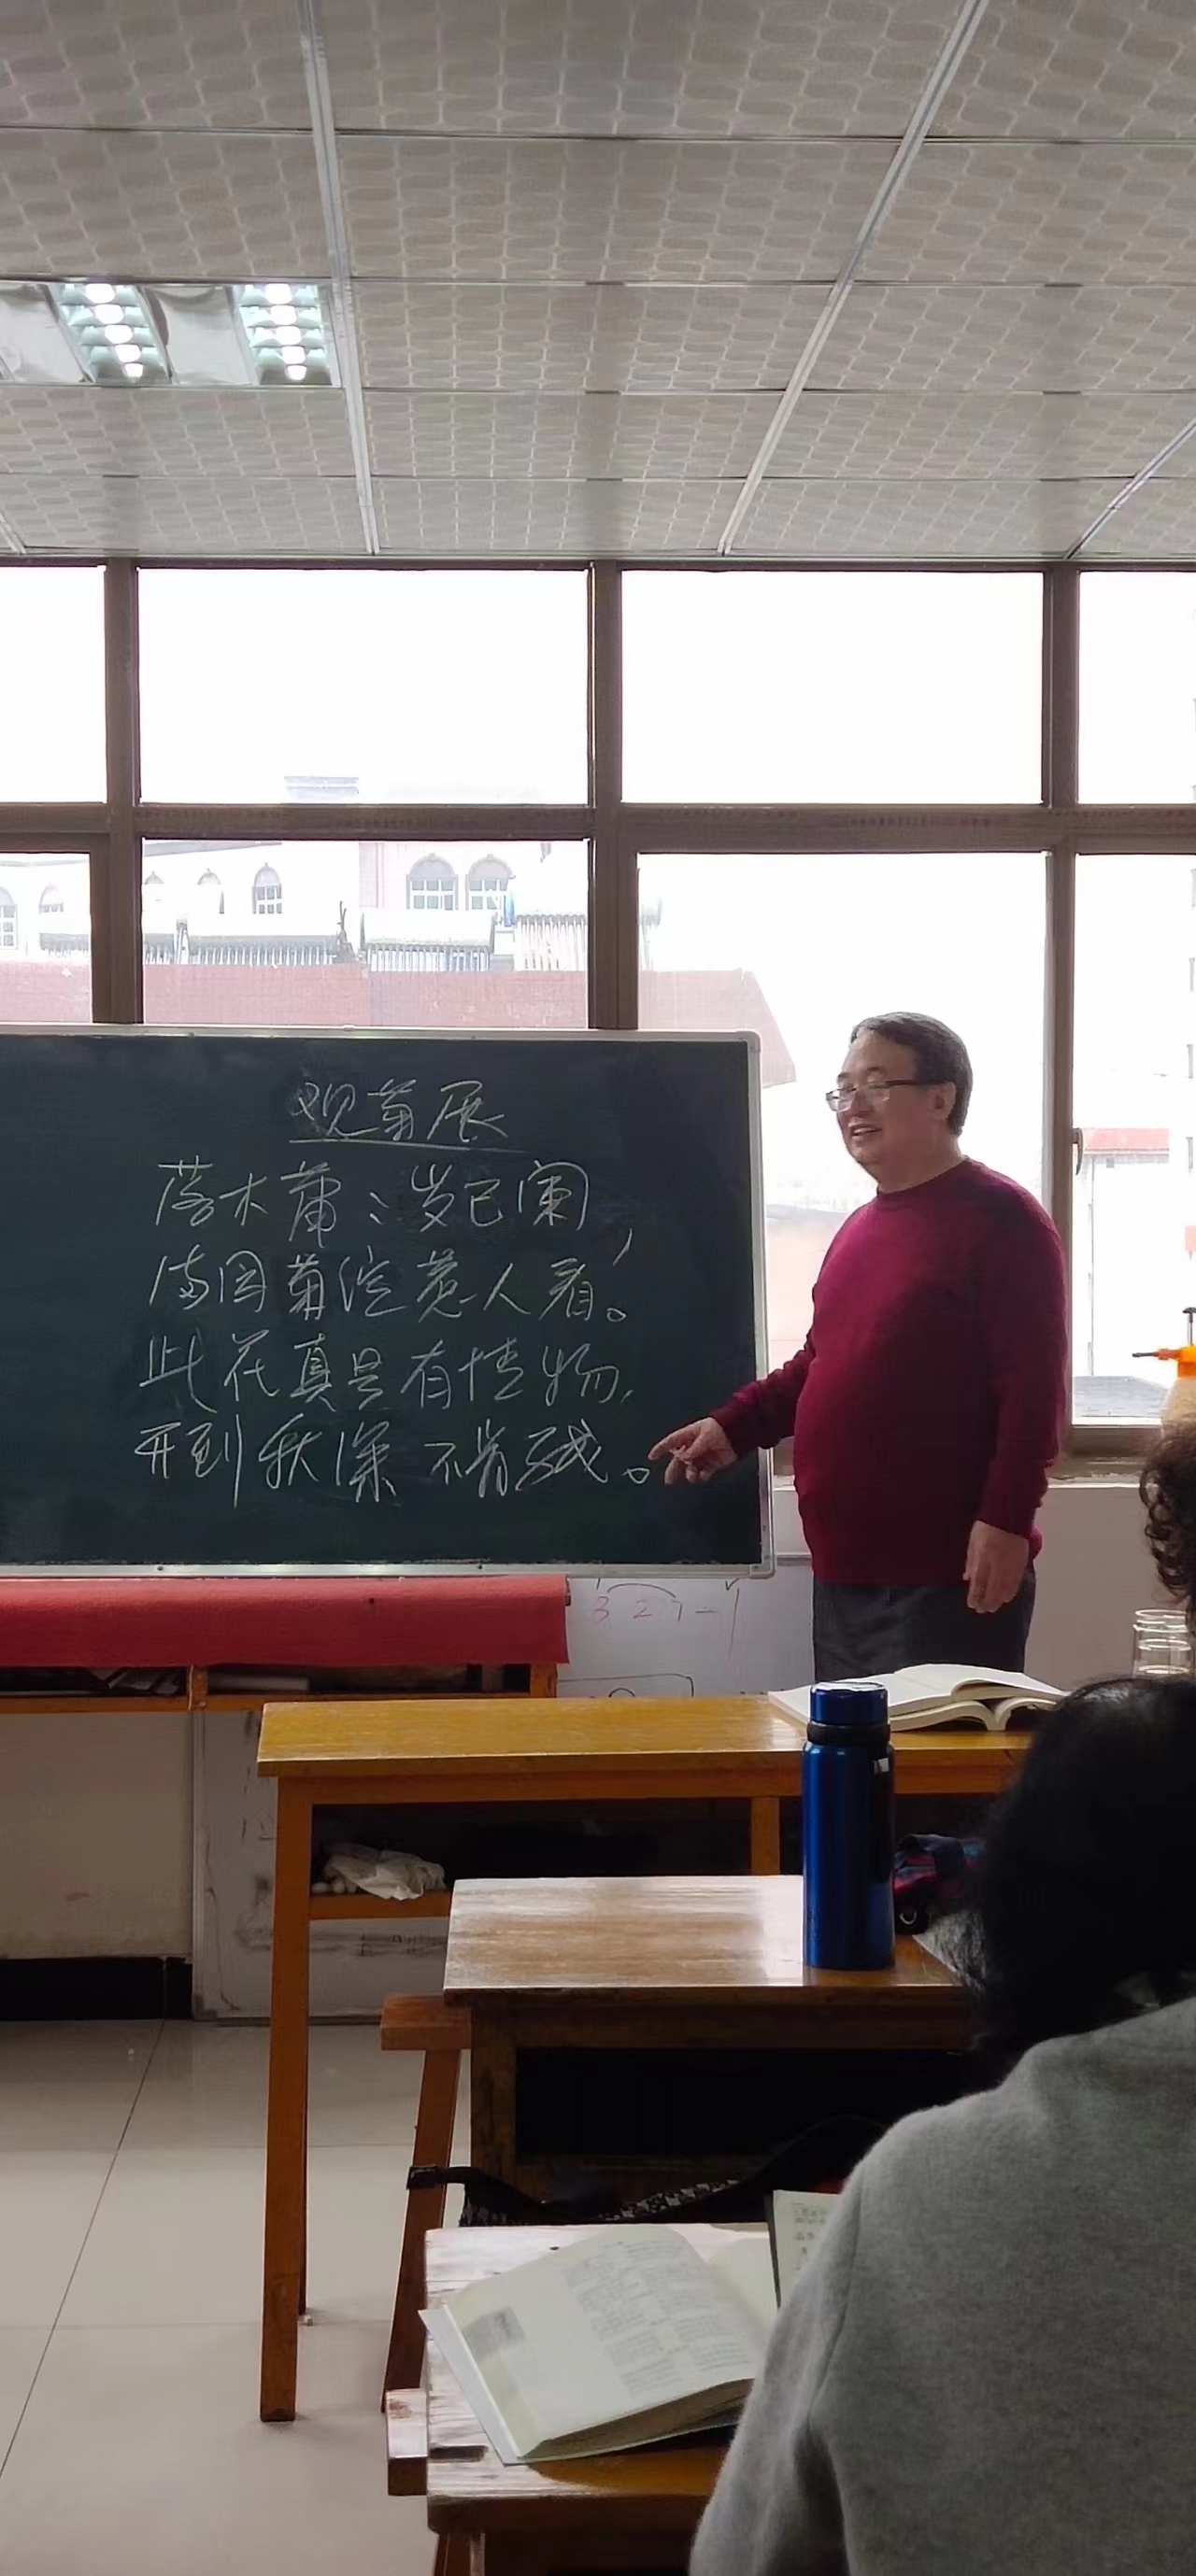 观菊展
落木萧〻岁已阑，
满园菊绽惹人看。
此花真是有情物，
开到秋深不肯残。